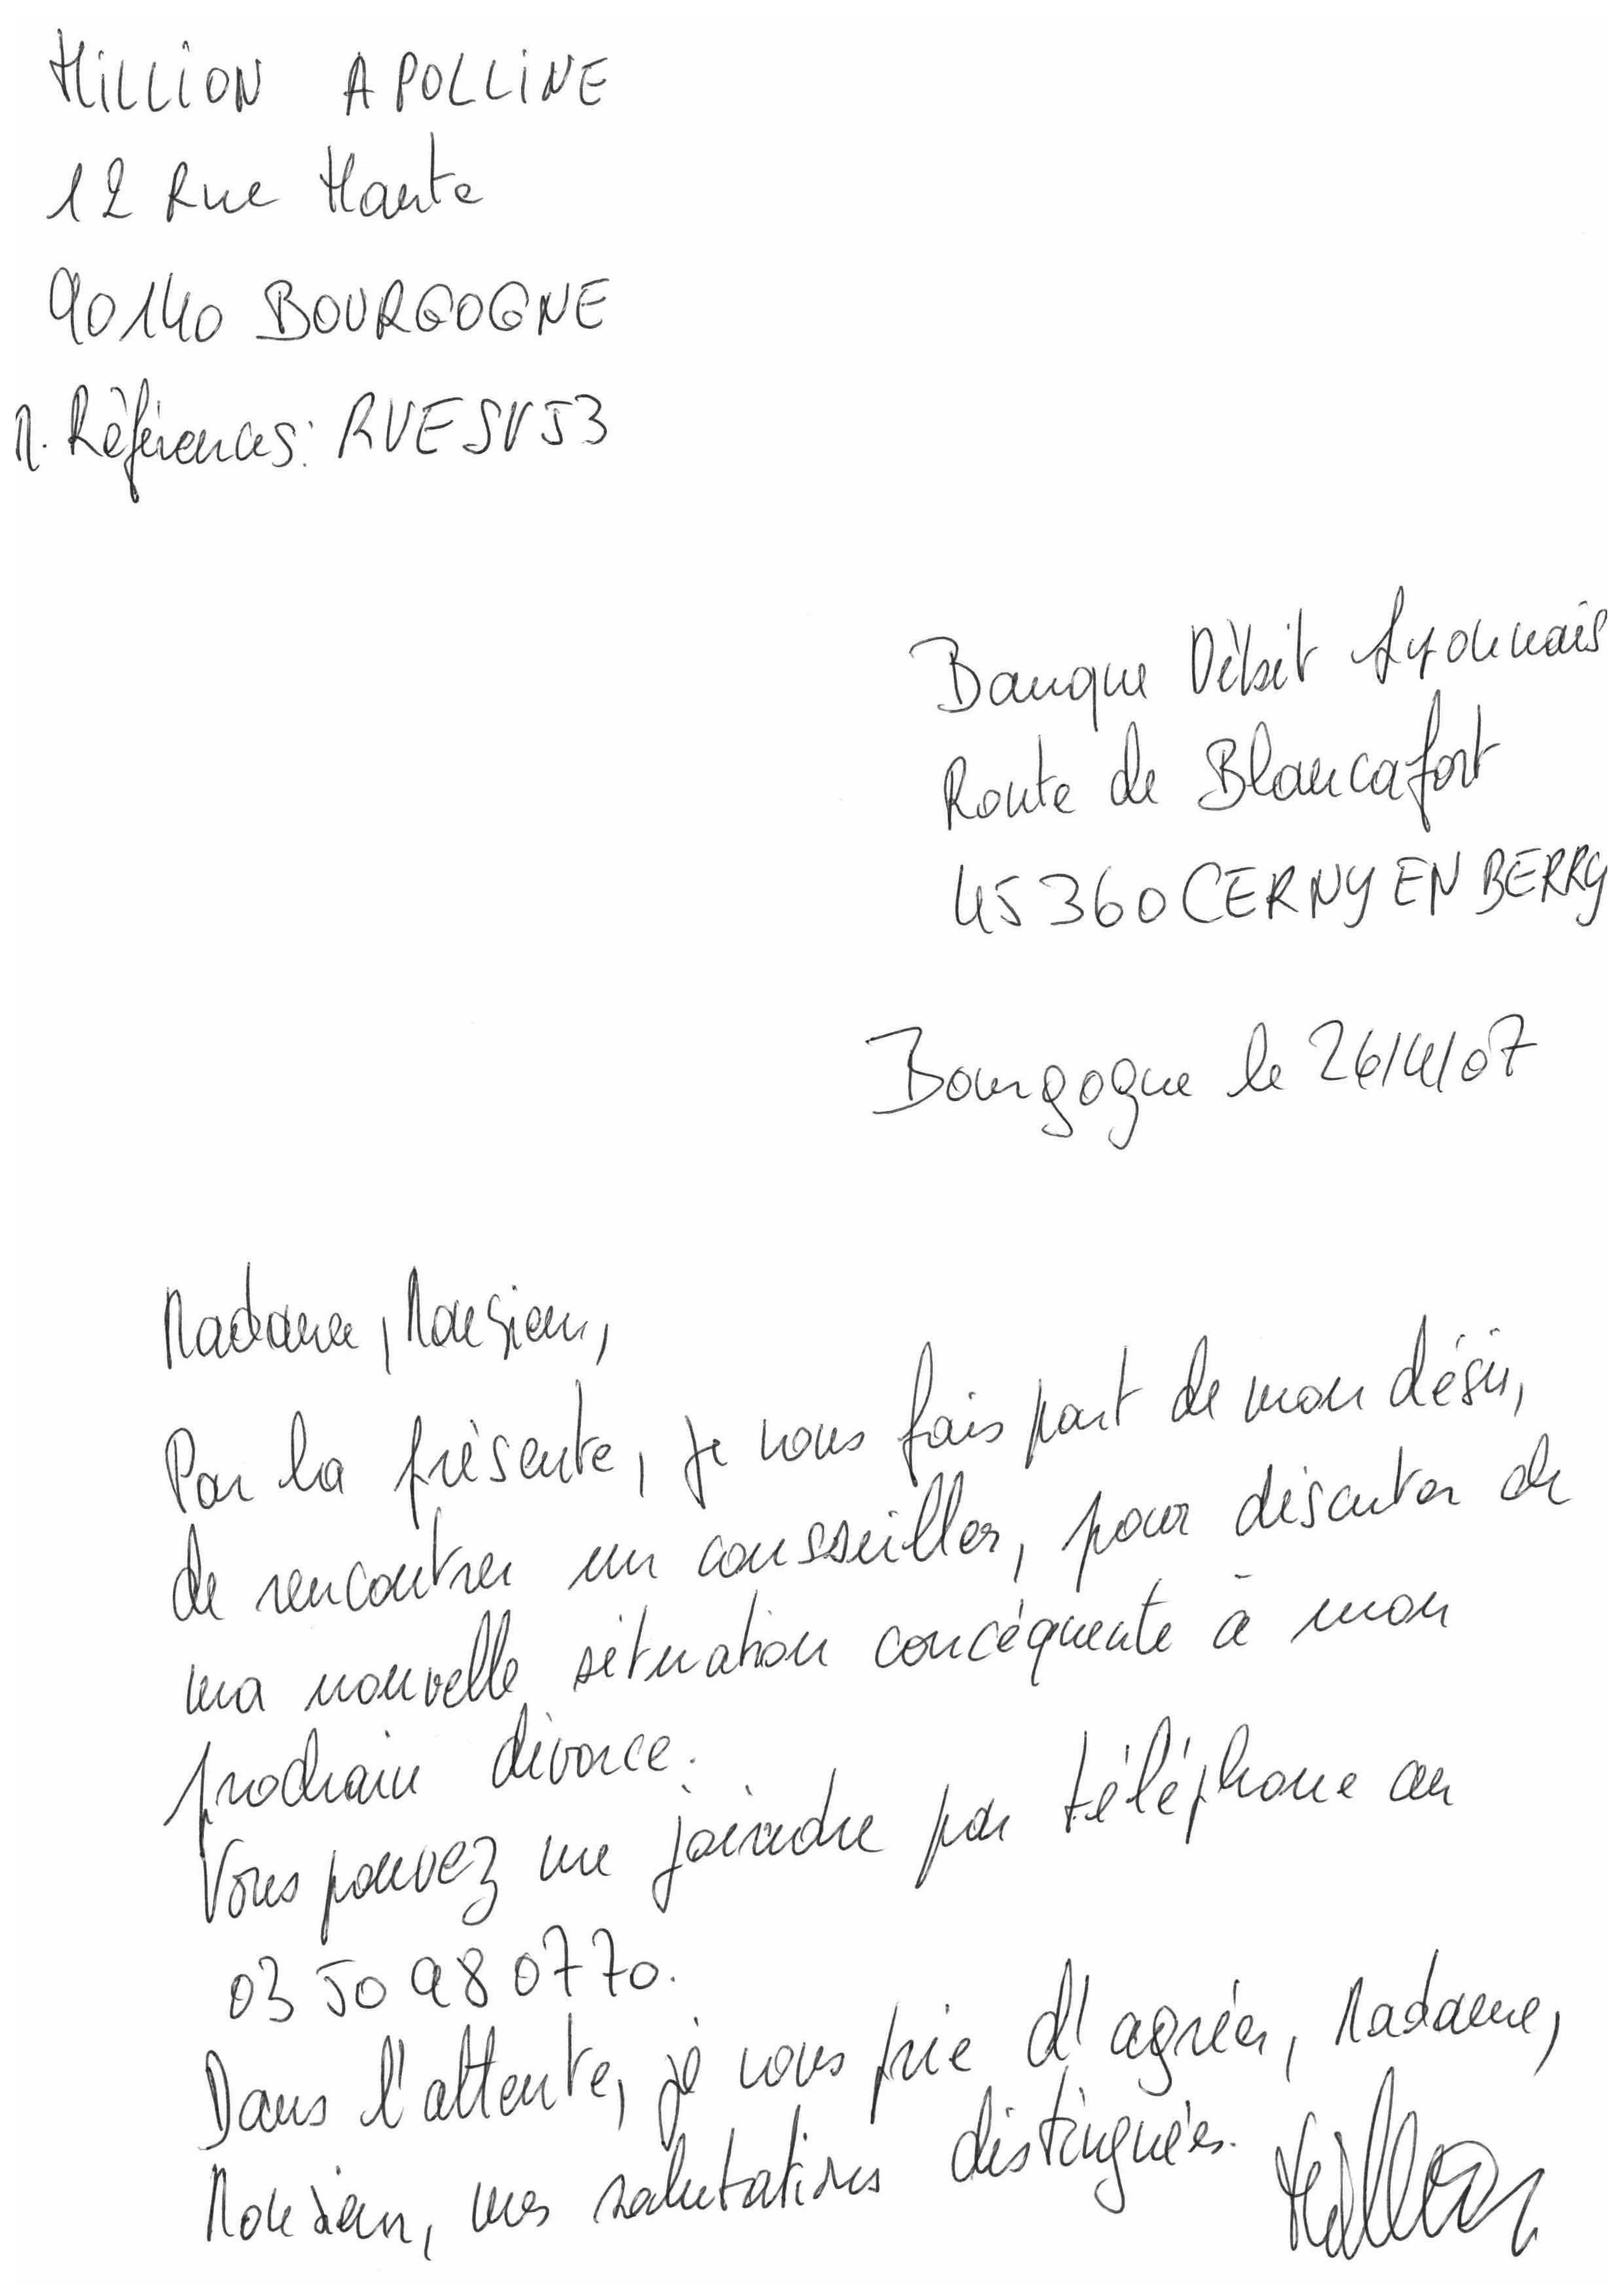 HILLION APOLLINE
12 Rue Haute
90140 BOURGOGNE
N. Références: RVESV53
Banque Débit Lyonnais
Route de Blancafort
45360 CERNY EN BERRY
Bourgogne le 26/4/07
Madame, Monsieur,
Par la présente, je vous fais part de mon désir,
de rencontrer un consseiller, pour discuter de
ma nouvelle situation concéquente à mon
prochain divorce.
Vous pouvez me joindre par téléphone au
03 50 98 07 70.
Dans l'attente, je vous prie d'agréer, Madame,
Monsieur, mes salutations distinguées.
Hillion